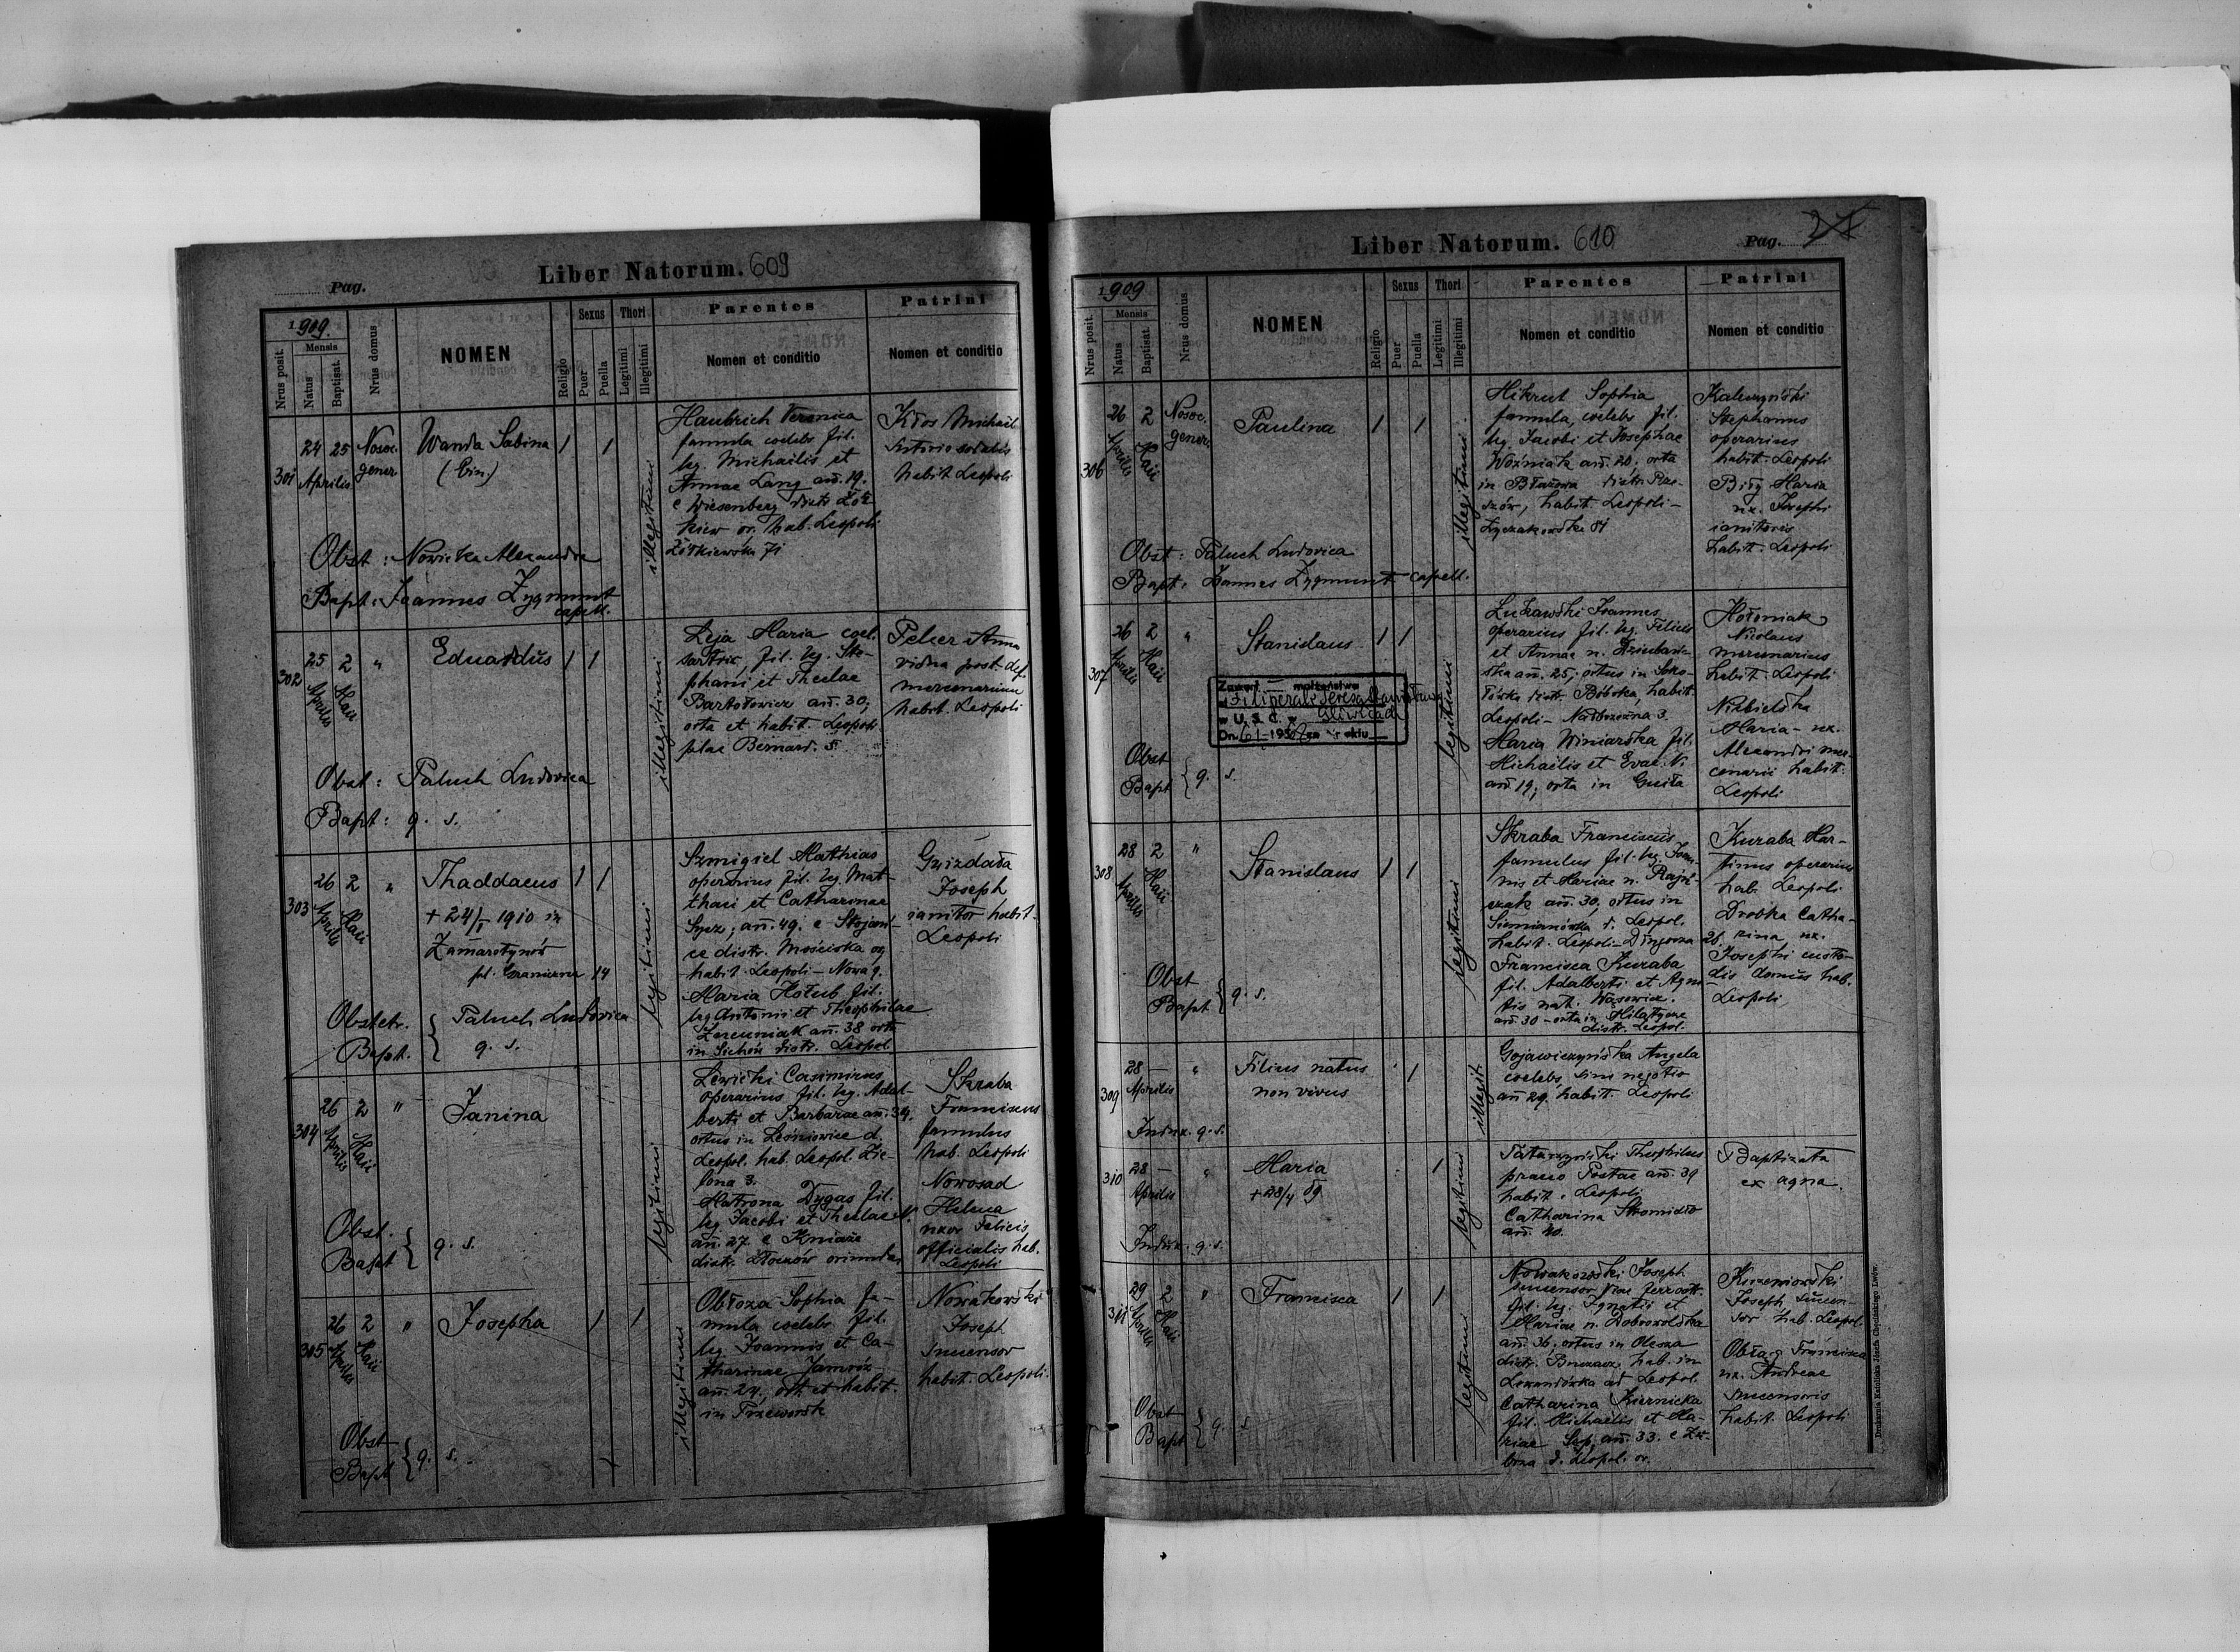 Liber Natorum. 609
Pag.
1909.
Nrus posit.
Mensis
Natus
Baptisat.
Nrus domus
NOMEN
Religio
Sexus
Puer
Puella
Thori
Legitimi
Illegitimi
Parentes
Nomen et conditio
Patrini
Nomen et conditio
301
24 25
Aprilis
Nosoc.
gener
Wanda Sabina
(Bin.)
illegitimi
Haubrich Veronica
famula coelebs fil.
leg. Michaelis et
Annae Lang ann. 19.
e Wiesenberg distr. Żół-
kiew or. hab. Leopoli
Żółkiewska 71
Kłos Michael
habit Leopoli
Obst: Nowicka Alexandra
Bapt: Joannes Zygmunt
capell.
302
25 2
Aprilis Maii
"
Eduardus
illegitimi
Leja Maria coel.
sartrix, fil. leg. Ste-
phani et Theclae
Bartołowicz ann. 30,
orta et habit. Leopoli
plac Bernard. 5.
Pelcer Anna
vidua post def.
mercenarium
habit. Leopoli
Obst: Paluch Ludovica
Bapt: q. s.
303
26 2
Aprilis Maii
"
Thaddaeus
+ 24/I 1910 in
Zamarstynów
pl. Graniczna 14
legitimi
Szmigiel Mathias
operarius fil. leg. Mat-
thaei et Catharinae
Sycz; ann. 49. e Stojan-
ce distr. Mościska or.
habit. Leopoli - Nowa 9.
Maria Hołub fil.
leg. Antonii et Theophilae
ann. 38 orta
in Sichów distr. Leopol.
Gwizdała
Joseph
ianitor habit.
Leopoli
Obstetr. Paluch Ludovica
Bapt. q. s.
304
26 2
Aprilis Maii
"
Janina
legitimi
Lewicki Casimirus
operarius fil. leg. Adal-
berti et Barbarae ann. 34.
ortus in Leśniowice d.
Leopol. hab. Leopol. Zie-
lona 3.
Matrona Dygas fil.
leg. Jacobi et Theclae N.
ann. 27. e Kniaże
distr. Złoczów oriunda
Skraba
Franciscus
famulus
hab. Leopoli
Nowosad
Helena
uxor Felicis
officialis hab.
Leopoli
Obst.
Bapt q. s.
305
26 2
Aprilis Maii
"
Josepha
illegitimi
Obłoza Sophia fa-
mula coelebs fil.
leg. Joannis et Ca-
tharinae Jamróz
ann. 24., orta et habit.
in Przeworsk
Nowakowski
Joseph
succensor
habit. Leopoli.
Obst
Bapt q. s.
Liber Natorum. 610
Pag.
1909
Nrus posit.
Mensis
Natus
Baptisat.
Nrus domus
NOMEN
Religio
Sexus
Puer
Puella
Thori
Legitimi
Illegitimi
Parentes
Nomen et conditio
Patrini
Nomen et conditio
306
26 2
Aprilis Maii
Nosoc.
gener.
Paulina
illegitimi
Hikrut Sophia
famula, coelebs fil.
leg. Jacobi et Josephae
Woźniak ann. 20; orta
in Błażowa distr. Rze-
szów, habit. Leopoli -
Łyczakowska 81
Kaluzyński
Stephanus
operarius
habit. Leopoli
Biły Maria
ux. Josephi
ianitoris
habit. Leopoli
Obst: Paluch Ludovica
Bapt: Joannes Zygmunt capell.
307
26 2
Aprilis Maii
"
Stanislaus
Zawarł małżeństwo
w U.S.C. w Gliwicach
legitimi
Łukawski Joannes
operarius fil. leg. Felicis
et Annae n.
ann. 25; ortus in Soko-
łówka distr. Bóbrka, habit.
Leopoli - Nadbrzeżna 3.
Maria Winiarska fil.
Michaelis et Evae N.
ann. 19; orta in Gniła
Hołoniak
Nicolaus
mercenarius
habit. Leopoli
Niebielska
Maria - ux.
Alexandri mer-
cenarii habit.
Leopoli
Obst
Bapt q. s.
308
28 2
Aprilis Maii
"
Stanislaus
legitimi
Skraba Franciscus
famulus fil. leg. Joan-
nis et Mariae n.
ann. 30, ortus in
Siemianówka d. Leopol.
habit. Leopoli - 26.
Francisca Kuraba
fil. Adalberti et Agne-
tis nat. Wąsowicz.
ann. 30 - orta in
distr. Leopol.
Kuraba Mar-
tinus operarius
hab. Leopoli
Drobka Catha-
rina ux.
Josephi custo-
dis domus hab.
Leopoli
Obst
Bapt q. s.
309
28 —
Aprilis
"
Filius natus
non vivus
illegit.
Gojawiczyńska Angela
coelebs, sine negotio
ann 29. habit. Leopoli
q. s.
310
28 —
Aprilis
"
Maria
+ 28/4 09
legitimi
Tatarzyński Theophilus
praeco Postae ann. 39
habit. Leopoli
Catharina
ann. 40.
Baptizata
ex aqua.
q. s.
311
29 2
Aprilis Maii
"
Francisca
legitimi
Nowakowski Joseph
succensor viae ferreae
fil. leg. Ignatii et
Mariae n. Dobrowolska
ann. 36, ortus in Olesza
distr. Buczacz, hab. in
Lewandówka ad Leopol.
Catharina Kiernicka
fil. Michaelis et Ma-
riae ann. 33. e Zu-
brza d. Leopol. or.
Krzemowski
Joseph, succen-
sor hab. Leopol.
Francisca
ux. Andreae
succensoris
habit. Leopoli
Obst
Bapt q. s.
Drukarnia Katolicka Józefa Chęcińskiego Lwów.